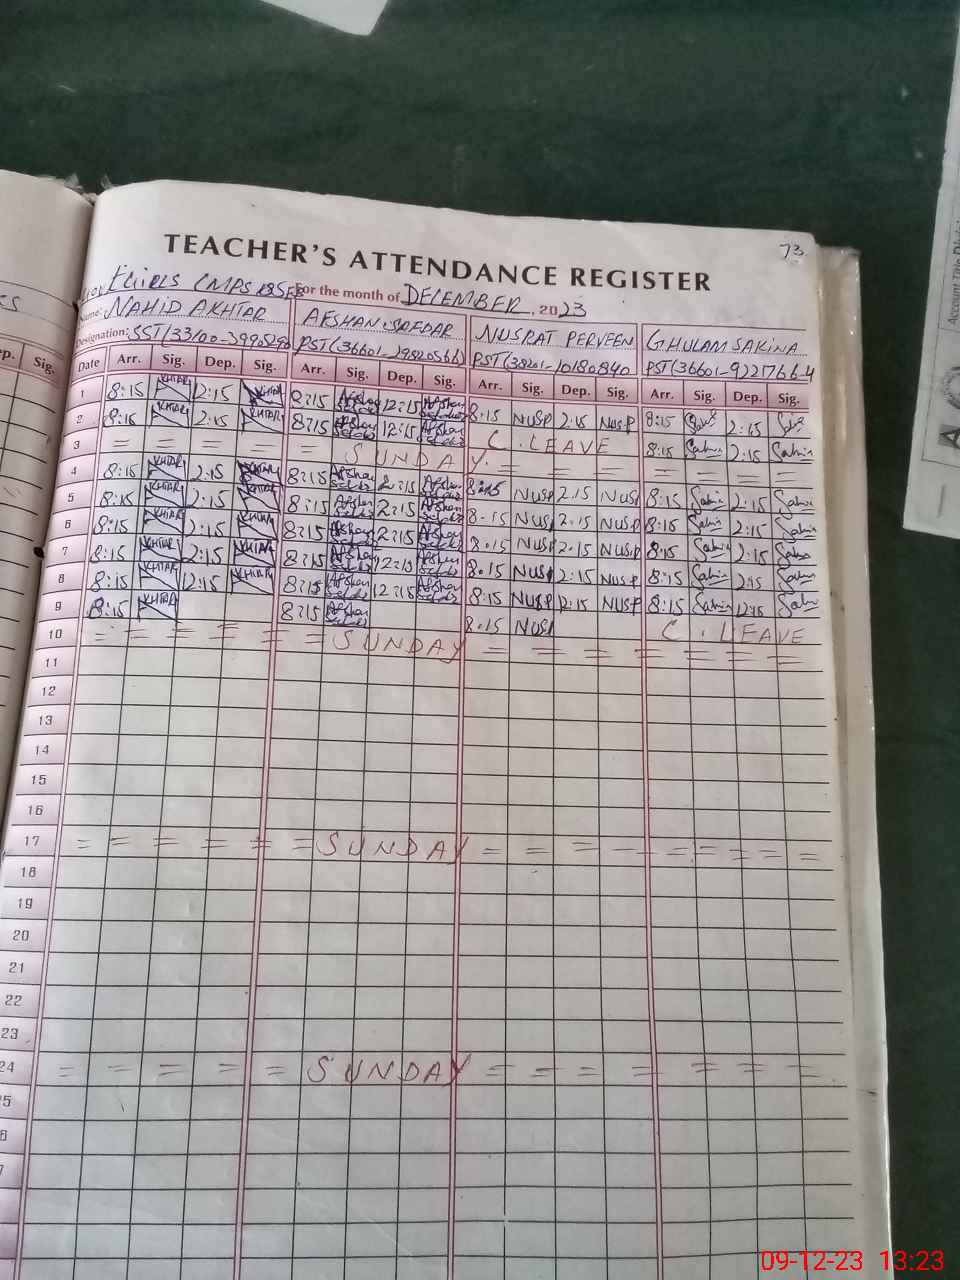 73
TEACHER'S ATTENDANCE REGISTER
GIRLS CMPS For the month of DECEMBER, 2023
Name: NAHID AKHTAR AFSHAN SAFDAR NUSRAT PERVEEN GHULAM SAKINA
Designation: SST(33100- PST(36601- PST(38201-10180840 PST(36601-9221766-4
ep. Sig. Date Arr. Sig. Dep. Sig. Arr. Sig. Dep. Sig. Arr. Sig. Dep. Sig. Arr. Sig. Dep. Sig.
1 8:15 AKHTAR 2:15 AKHTAR 8:15 Afshan 12:15 Afshan 8.15 NUSP 2:15 NUSP 8:15 2:15
2 8:15 AKHTAR 2:15 AKHTAR 8:15 Afshan 12:15 Afshan C. LEAVE 8:15 Sakin 2:15 Sakin
3 = = = = = SUNDAY. = = = = = = =
4 8:15 AKHTAR 2:15 AKHTAR 8:15 Afshan 2:15 Afshan 8:15 NUSP 2.15 NUSP 8:15 Sakin 2:15 Sakin
5 8:15 AKHTAR 2:15 AKHTAR 8:15 Afshan 2:15 Afshan 8.15 NUSP 2.15 NUSP 8:15 Sakin 2:15 Sakin
6 8:15 AKHTAR 2:15 AKHTAR 8:15 Afshan 2:15 Afshan 8.15 NUSP 2.15 NUSP 8:15 Sakin 2:15 Sakin
7 8:15 AKHTAR 2:15 AKHTAR 8:15 Afshan 12:15 Afshan 8.15 NUSP 2:15 NUSP 8:15 Sakin 2:15 Sakin
8 8:15 AKHTAR 12:15 AKHTAR 8:15 Afshan 12:15 Afshan 8:15 NUSP 2:15 NUSP 8:15 Sakin 12:15 Sakin
9 8:15 AKHTAR 8:15 Afshan 8.15 NUSP C. LEAVE
10 = = = = = = SUNDAY = = = = = = = =
11
12
13
14
15
16
17 = = = = = = SUNDAY = = = = = = = =
18
19
20
21
22
23
24 = = = = = SUNDAY = = = = = = =
5
6
7
09-12-23 13:23